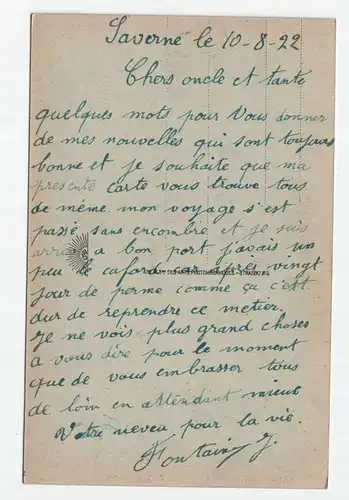 Saverne le 10-8-22
Chers oncle et tante
quelques mots pour vous donner
de mes nouvelles qui sont toujours
bonne et je souhaite que ma
presente carte vous trouve tous
de même. mon voyage s'est
passé sans encombre et je suis
arrivé a bon port j'avais un
peu le cafard car après vingt
jour de perme comme ça c'est
dur de reprendre ce metier.
Je ne vois plus grand choses
a vous dire pour le moment
que de vous embrasser tous
de loin en attendant mieux
Votre neveu pour la vie.
Fontaine J.